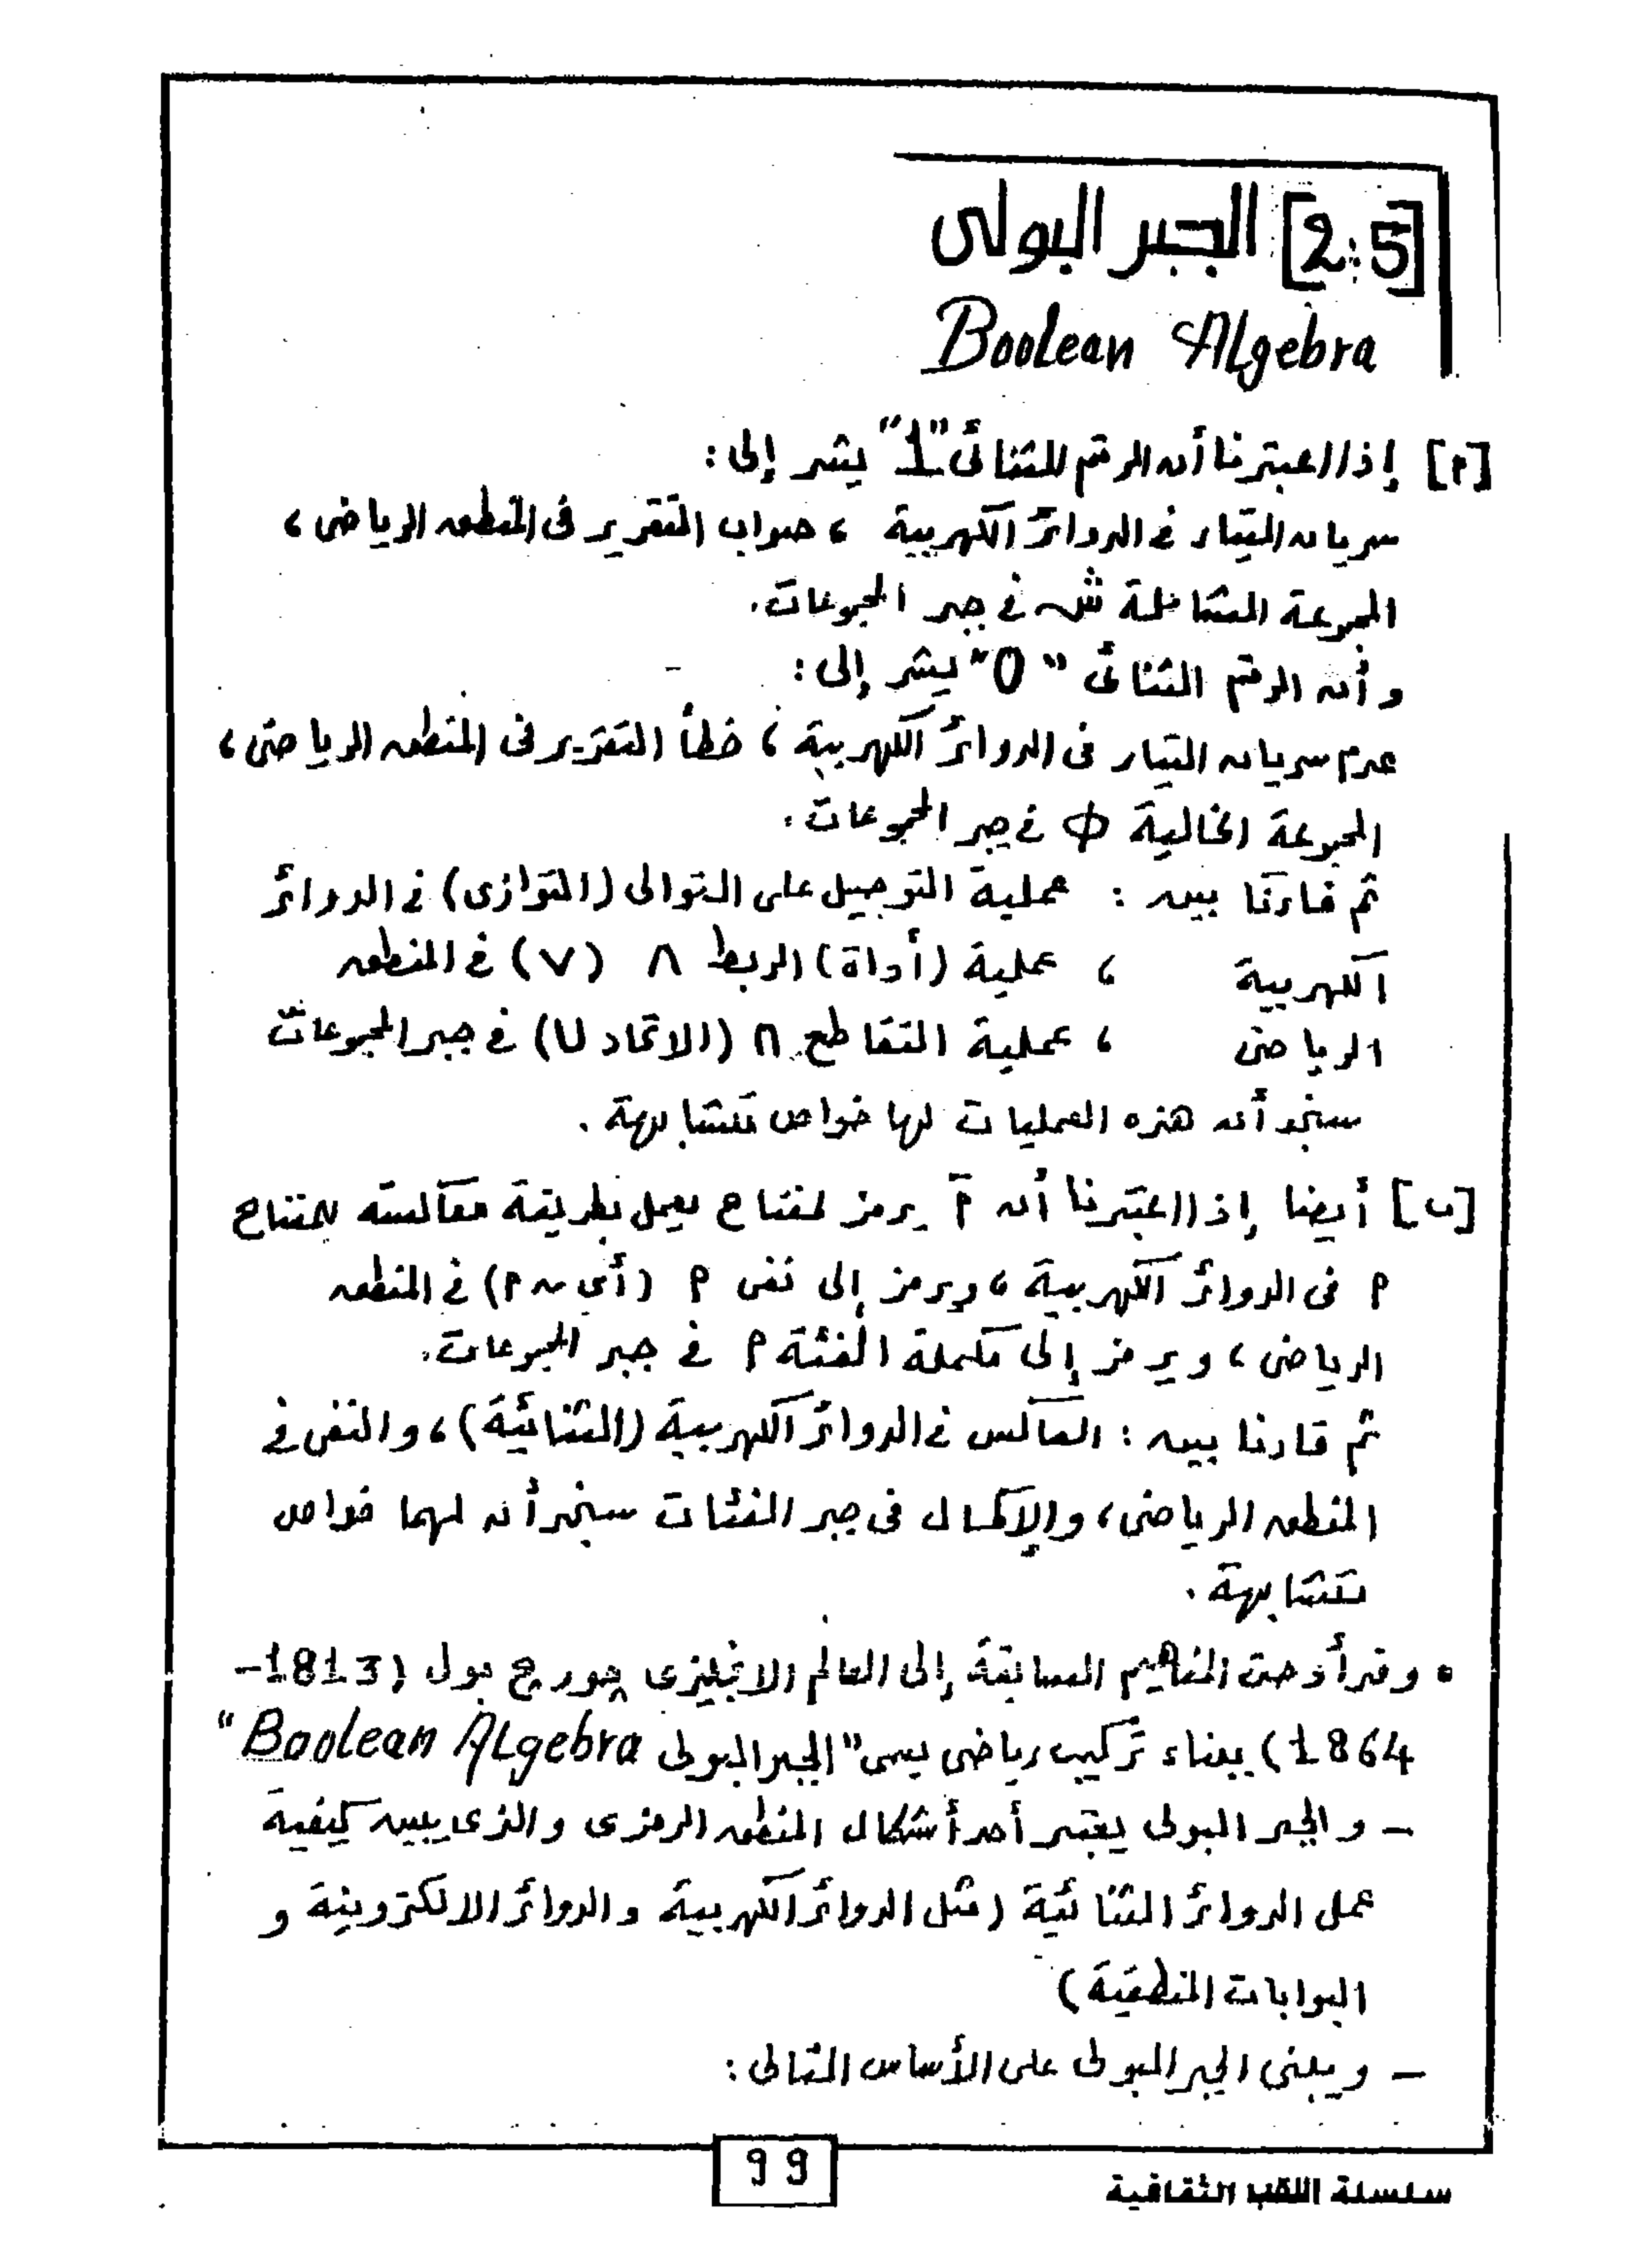 [2:5] الجبر البولى
Boolean Algebra
[أ] إذا اعتبرنا أن الرقم الثنائى "1" يشير إلى:
سريان التيار فى الدوائر الكهربية ، صواب التقرير فى المنطق الرياضى ،
المجموعة الشاملة ش فى جبر المجموعات.
وأن الرقم الثنائى "0" يشير إلى:
عدم سريان التيار فى الدوائر الكهربية ، خطأ التقرير فى المنطق الرياضى ،
المجموعة الخالية Φ فى جبر المجموعات.
ثم قارنا بين : عملية التوصيل على التوالى (التوازى) فى الدوائر
الكهربية ، عملية (أداة) الربط ∧ (∨) فى المنطق
الرياضى ، عملية التقاطع ∩ (الاتحاد ∪) فى جبر المجموعات
سنجد أن هذه العمليات لها خواص متشابهة .
[ب] أيضا إذا اعتبرنا أن أَ يرمز لمفتاح يعمل بطريقة معاكسة للمفتاح
أ فى الدوائر الكهربية ، ويرمز إلى نفى أ (أى ~ أ) فى المنطق
الرياضى ، ويرمز إلى مكملة الفئة أ فى جبر المجموعات.
ثم قارنا بين : العاكس فى الدوائر الكهربية (الثنائية) ، والنفى فى
المنطق الرياضى ، والإكمال فى جبر الفئات سنجد أن لهما خواص
متشابهة .
• وقد أوحت المفاهيم السابقة إلى العالم الانجليزى چورچ بول (1813-
1864) ببناء تركيب رياضى يسمى "الجبر البولى Boolean Algebra"
- والجبر البولى يعتبر أحد أشكال المنطق الرمزى والذى يبين كيفية
عمل الدوائر الثنائية (مثل الدوائر الكهربية والدوائر الالكترونية و
البوابات المنطقية)
- ويبنى الجبر البولى على الأساس التالى :
99
سلسلة اللقب الثقافية